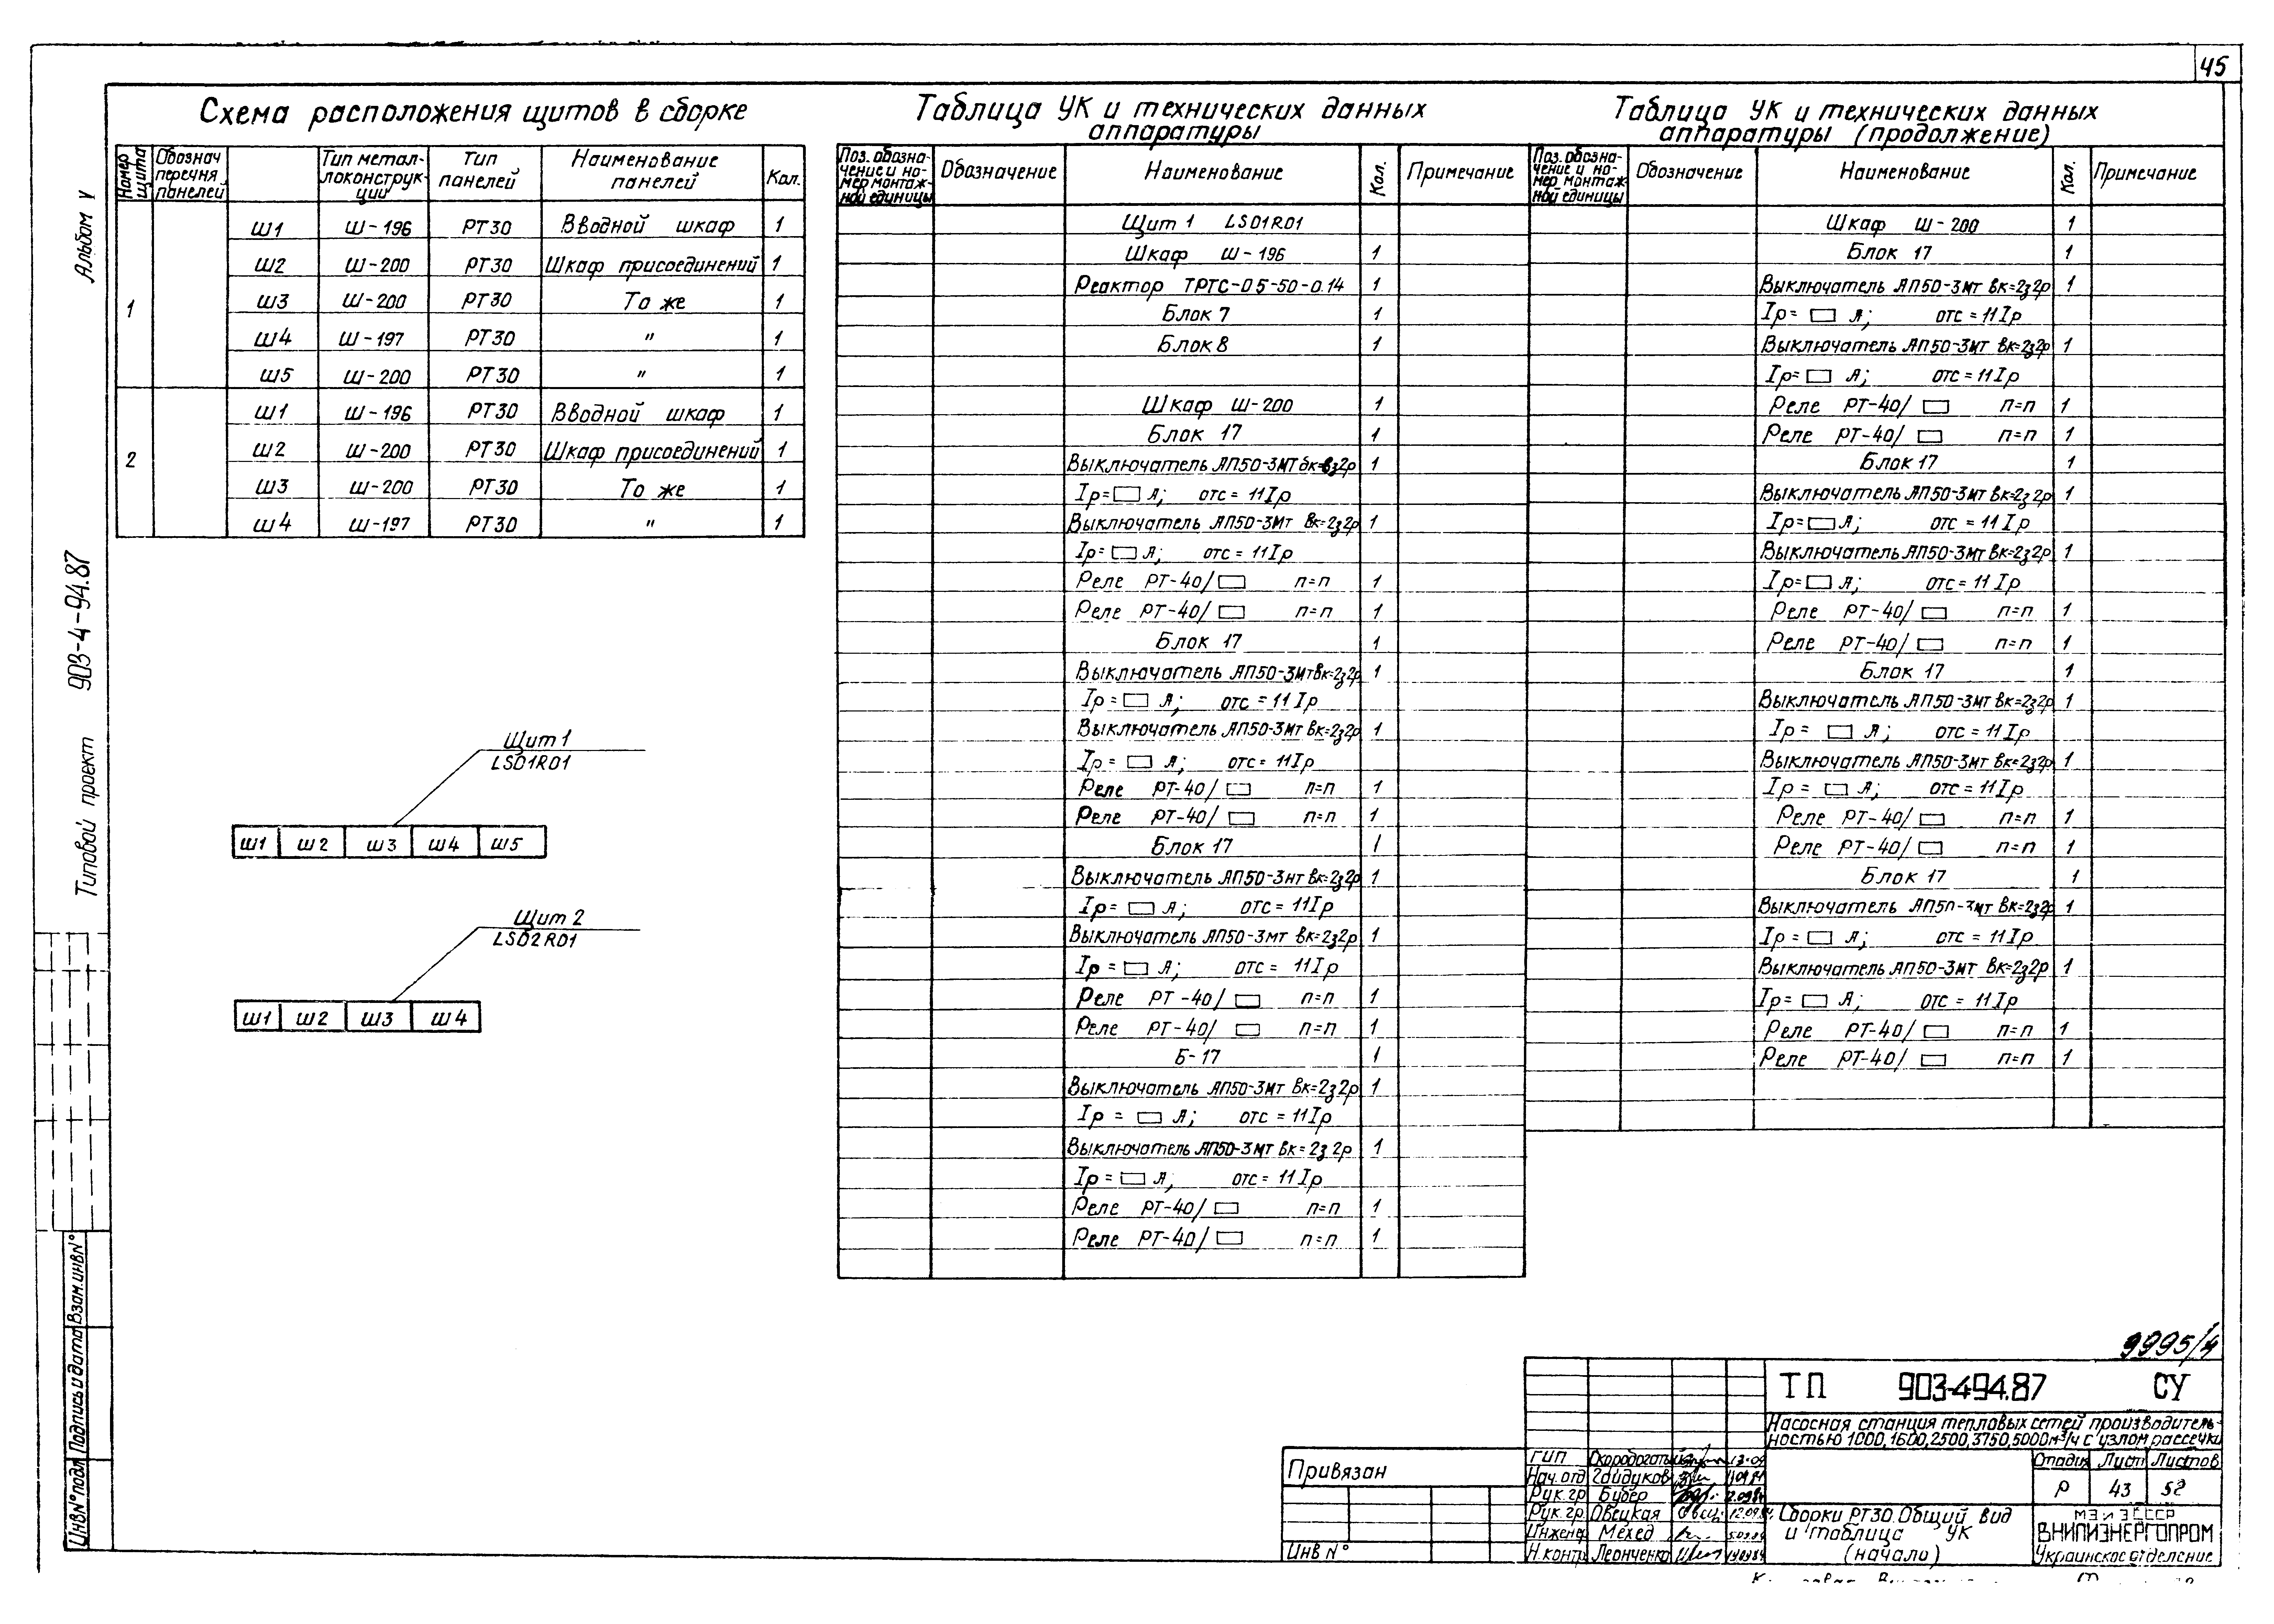 45
Схема расположения щитов в сборке
Номер щита
Обознач перечня панелей
Тип метал-локонструк-ции
Тип панелей
Наименование панелей
Кол.
1
Ш1 Ш-196 РТ30 Вводной шкаф 1
Ш2 Ш-200 РТ30 Шкаф присоединений 1
Ш3 Ш-200 РТ30 То же 1
Ш4 Ш-197 РТ30 " 1
Ш5 Ш-200 РТ30 " 1
2
Ш1 Ш-196 РТ30 Вводной шкаф 1
Ш2 Ш-200 РТ30 Шкаф присоединений 1
Ш3 Ш-200 РТ30 То же 1
Ш4 Ш-197 РТ30 " 1
Щит 1
LSD1R01
Ш1 Ш2 Ш3 Ш4 Ш5
Щит 2
LSD2R01
Ш1 Ш2 Ш3 Ш4
Таблица УК и технических данных
аппаратуры
Поз. обозна-
чение и но-
мер монтаж-
ной единицы
Обозначение
Наименование
Кол.
Примечание
Щит 1 LSD1R01
Шкаф Ш-196 1
Реактор ТРТС-05-50-0.14 1
Блок 7 1
Блок 8 1
Шкаф Ш-200 1
Блок 17 1
Выключатель АП50-3МТ 1
Iр= А; отс = 11Iр
Выключатель АП50-3МТ Вк=2з2р 1
Iр= А; отс = 11Iр
Реле РТ-40/ п=п 1
Реле РТ-40/ п=п 1
Блок 17 1
Выключатель АП50-3МТ Вк=2з2р 1
Iр= А; отс = 11Iр
Выключатель АП50-3МТ Вк=2з2р 1
Iр= А; отс = 11Iр
Реле РТ-40/ п=п 1
Реле РТ-40/ п=п 1
Блок 17 1
Выключатель АП50-3МТ Вк=2з2р 1
Iр= А; отс = 11Iр
Выключатель АП50-3МТ Вк=2з2р 1
Iр= А; отс = 11Iр
Реле РТ-40/ п=п 1
Реле РТ-40/ п=п 1
Б-17 1
Выключатель АП50-3МТ Вк=2з2р 1
Iр = А; отс = 11Iр
Выключатель АП50-3МТ Вк=2з2р 1
Iр= А; отс = 11Iр
Реле РТ-40/ п=п 1
Реле РТ-40/ п=п 1
Таблица УК и технических данных
аппаратуры (продолжение)
Поз. обозна-
чение и но-
мер монтаж-
ной единицы
Обозначение
Наименование
Кол.
Примечание
Шкаф Ш-200 1
Блок 17 1
Выключатель АП50-3МТ Вк=2з2р 1
Iр= А; отс = 11Iр
Выключатель АП50-3МТ Вк=2з2р 1
Iр= А; отс = 11Iр
Реле РТ-40/ п=п 1
Реле РТ-40/ п=п 1
Блок 17 1
Выключатель АП50-3МТ Вк=2з2р 1
Iр= А; отс = 11Iр
Выключатель АП50-3МТ Вк=2з2р 1
Iр= А; отс = 11Iр
Реле РТ-40/ п=п 1
Реле РТ-40/ п=п 1
Блок 17 1
Выключатель АП50-3МТ Вк=2з2р 1
Iр= А; отс = 11Iр
Выключатель АП50-3МТ Вк=2з2р 1
Iр= А; отс = 11Iр
Реле РТ-40/ п=п 1
Реле РТ-40/ п=п 1
Блок 17 1
Выключатель АП50-3МТ Вк=2з2р 1
Iр= А; отс = 11Iр
Выключатель АП50-3МТ Вк=2з2р 1
Iр= А; отс = 11Iр
Реле РТ-40/ п=п 1
Реле РТ-40/ п=п 1
Альбом V
Типовой проект 903-4-94.87
Взам.инв№
Подпись и дата
Инв№подл
9995/4
ТП 903-494.87 СУ
Насосная станция тепловых сетей производитель-
ностью 1000,1600,2500,3750,5000м³/ч с узлом рассечки
Привязан
Инв №
ГИП
Нач.отд Гайдуков
Рук.гр Бубер
Рук.гр. Овецкая 12.09.84
Инженер Мехед
Н.контр Леонченко
Стадия Лист Листов
Р 43 58
Сборки РТ30. Общий вид
и таблица УК
(начало)
МЭ и Э СССР
ВНИПИЭНЕРГОПРОМ
Украинское отделение